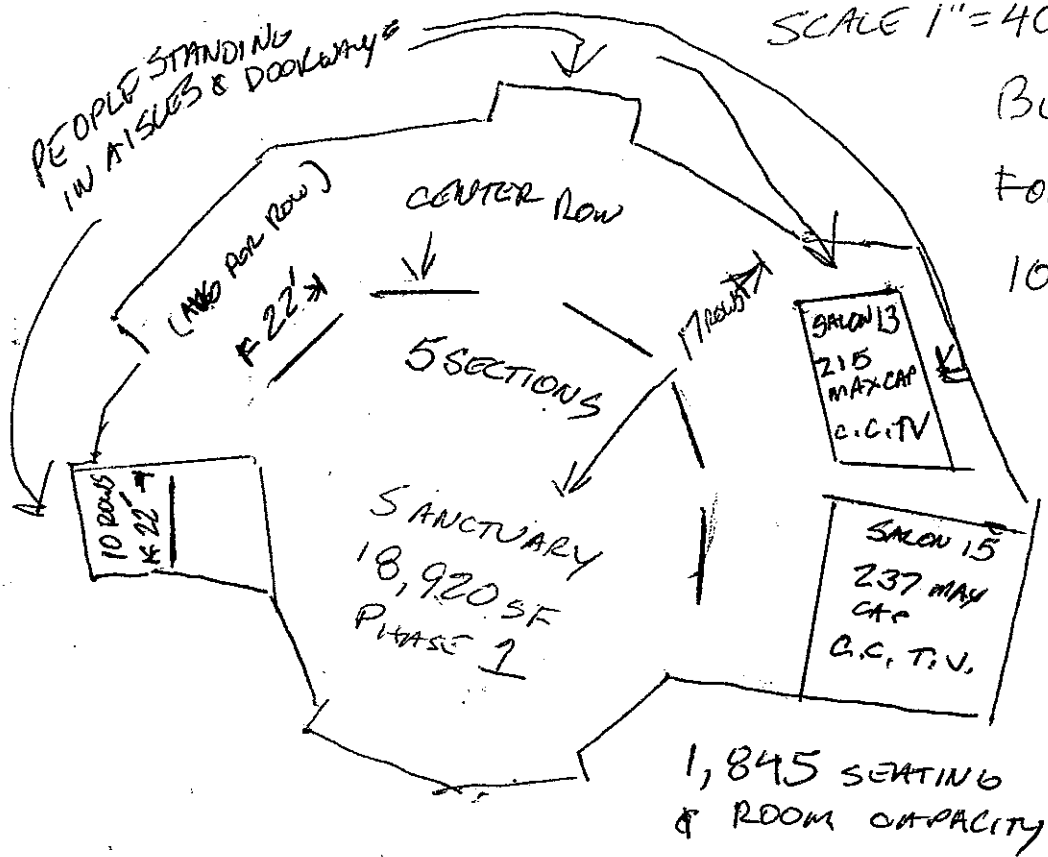 SCALE 1"=40
PEOPLE STANDING
IN AISLES & DOORWAYS
BU
FO
10
CENTER ROW
(AVG PER ROW)
22'
5 SECTIONS
17 ROWS
SALON 13
215
MAX CAP
C.C.TV
10 ROWS
22'
SANCTUARY
18,920 SF
PHASE 1
SALON 15
237 MAX
CAP
C.C. T.V.
1,845 SEATING
& ROOM CAPACITY